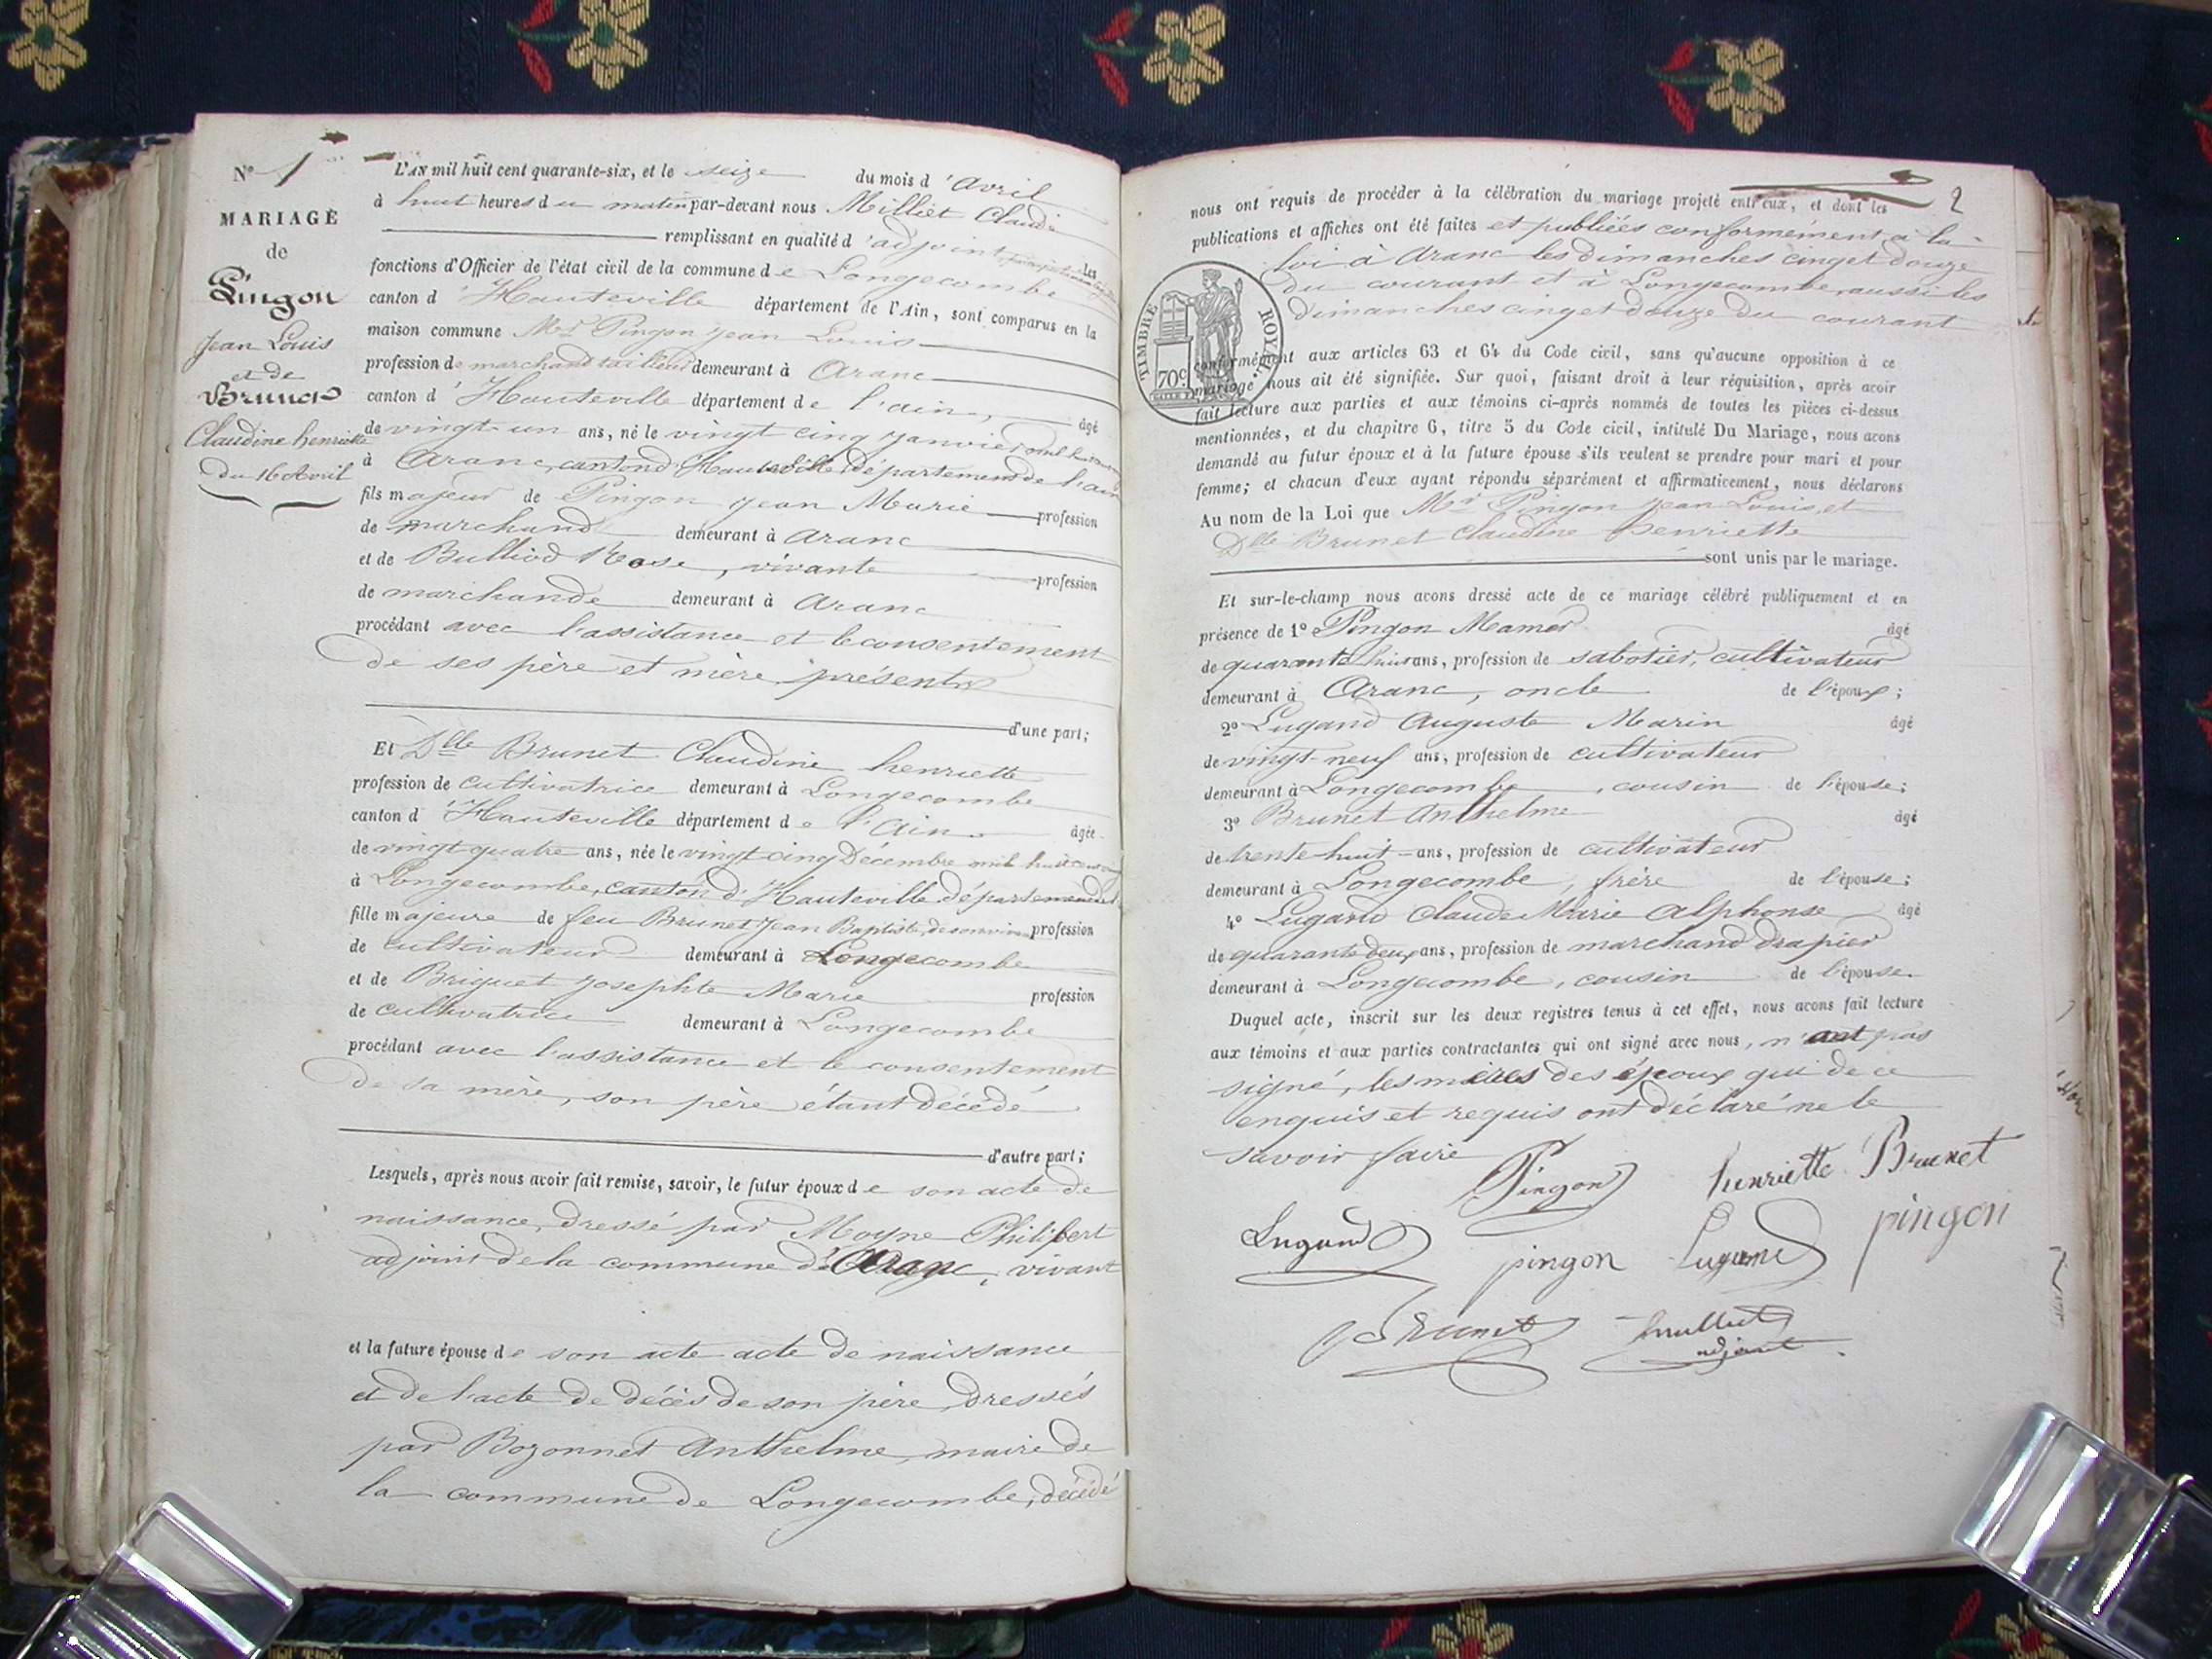 N° 1
MARIAGE
de
Pingon
Jean Louis
et de
Brunet
Claudine henriette
du 16 Avril
L'AN mil huit cent quarante-six, et le seize du mois d'avril
à huit heures du matin par-devant nous Milliet Claude
remplissant en qualité d'adjoint les
fonctions d'Officier de l'état civil de la commune de Longecombe
canton d'Hauteville département de l'Ain, sont comparus en la
maison commune Mr Pingon Jean Louis
profession de marchand tailleur demeurant à Aranc
canton d'Hauteville département de l'ain, âgé
de vingt-un ans, né le vingt cinq janvier mil huit cent
à Aranc, canton d'Hauteville, département de l'ain
fils majeur de Pingon Jean Marie profession
de marchand demeurant à Aranc
et de Bulliod Rose, vivante profession
de marchande demeurant à Aranc
procédant avec l'assistance et le consentement
de ses père et mère présents
d'une part;
Et Dlle Brunet Claudine henriette
profession de cultivatrice demeurant à Longecombe
canton d'Hauteville département de l'Ain âgée
de vingt quatre ans, née le vingt-cinq Décembre mil huit cent
à Longecombe, canton d'Hauteville, département
fille majeure de feu Brunet Jean Baptiste, de son vivant profession
de cultivateur demeurant à Longecombe
et de Briguet Josephte Marie profession
de cultivatrice demeurant à Longecombe
procédant avec l'assistance et le consentement
de sa mère, son père étant décédé
d'autre part;
Lesquels, après nous avoir fait remise, savoir, le futur époux de son acte de
naissance, dressé par Moyne Philibert
adjoint de la commune d'Aranc, vivant
et la future épouse de son acte acte de naissance
et de l'acte de décès de son père, dressés
par Bozonnet Anthelme, maire de
la commune de Longecombe, décédé
2
nous ont requis de procéder à la célébration du mariage projeté entr'eux, et dont les
publications et affiches ont été faites et publiées conformément à la
loi à Aranc les dimanches cinq et douze
du courant et à Longecombe, aussi les
dimanches cinq et douze du courant
TIMBRE ROYAL
70c
conformément aux articles 63 et 64 du Code civil, sans qu'aucune opposition à ce
mariage nous ait été signifiée. Sur quoi, faisant droit à leur réquisition, après avoir
fait lecture aux parties et aux témoins ci-après nommés de toutes les pièces ci-dessus
mentionnées, et du chapitre 6, titre 5 du Code civil, intitulé Du Mariage, nous avons
demandé au futur époux et à la future épouse s'ils veulent se prendre pour mari et pour
femme; et chacun d'eux ayant répondu séparément et affirmativement, nous déclarons
Au nom de la Loi que Mr Pingon Jean Louis, et
Dlle Brunet Claudine henriette
sont unis par le mariage.
Et sur-le-champ nous avons dressé acte de ce mariage célébré publiquement et en
présence de 1° Pingon Mamer âgé
de quarante huit ans, profession de sabotier, cultivateur
demeurant à Aranc, oncle de l'époux;
2° Lugand Auguste Marin âgé
de vingt-neuf ans, profession de cultivateur
demeurant à Longecombe, cousin de l'épouse;
3° Brunet Anthelme âgé
de trente-huit ans, profession de cultivateur
demeurant à Longecombe, frère de l'épouse;
4° Lugand Claude Marie Alphonse âgé
de quarante deux ans, profession de marchand drapier
demeurant à Longecombe, cousin de l'épouse.
Duquel acte, inscrit sur les deux registres tenus à cet effet, nous avons fait lecture
aux témoins et aux parties contractantes qui ont signé avec nous, n'ont pas
signé, les mères des époux qui de ce
enquis et requis ont déclaré ne le
savoir faire
Pingon henriette Brunet
Lugand pingon Lugand pingon
Brunet Milliet
adjoint